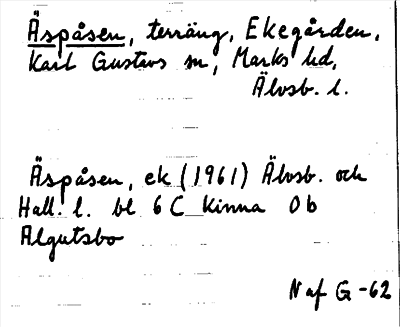 Äspåsen, terräng, Ekegården,
Karl Gustavs sn, Marks hd,
Älvsb. l.
Äspåsen, ek (1961) Älvsb. och
Hall. l. bl 6 C Kinna 0 b
Algutsbo
N af G -62